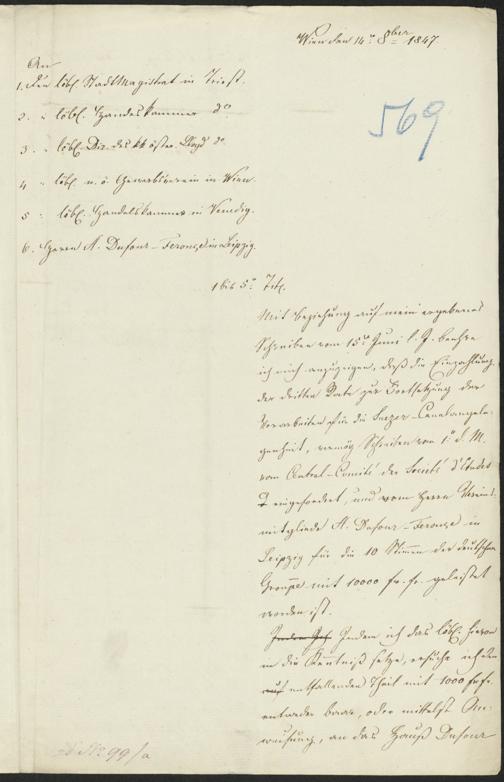 Wien den 14ten 8ber 1847.
569
An
1. Den löbl. Stadtmagistrat in Triest.
2. " löbl. Handelskammer do
3. " löbl. Dir. des kk öster. Lloyd do
4 " löbl. n. ö. Gewerbverein in Wien.
5 " löbl. Handelskammer in Venedig.
6. Herrn A. Dufour-Feronce in Leipzig.
1 bis 5. Titl.
Mit Beziehung auf mein ergebenes
Schreiben vom 15ten Juni l. J. beehre
ich mich anzuzeigen, daß die Einzahlung
der dritten Rate zur Fortsetzung der
Vorarbeiten für die Suezer-Canalangele-
genheit, vermög Schreiben vom 1. d. M.
vom Central-Comité der Societé d'Etudes
eingefordert, und vom Herrn Vereins-
mitgliede A. Dufour-Feronce in
Leipzig für die 10 Stimmen der deutschen
Gruppe mit 10000 fr. fr. geleistet
worden ist.
Indem ich das löbl. hievon
in die Kenntniß setze, ersuche ich den
entfallenden Theil mit 1000 fr fr.
entweder baar, oder mittelst An-
weisung, an das Hauß Dufour
No 99/a